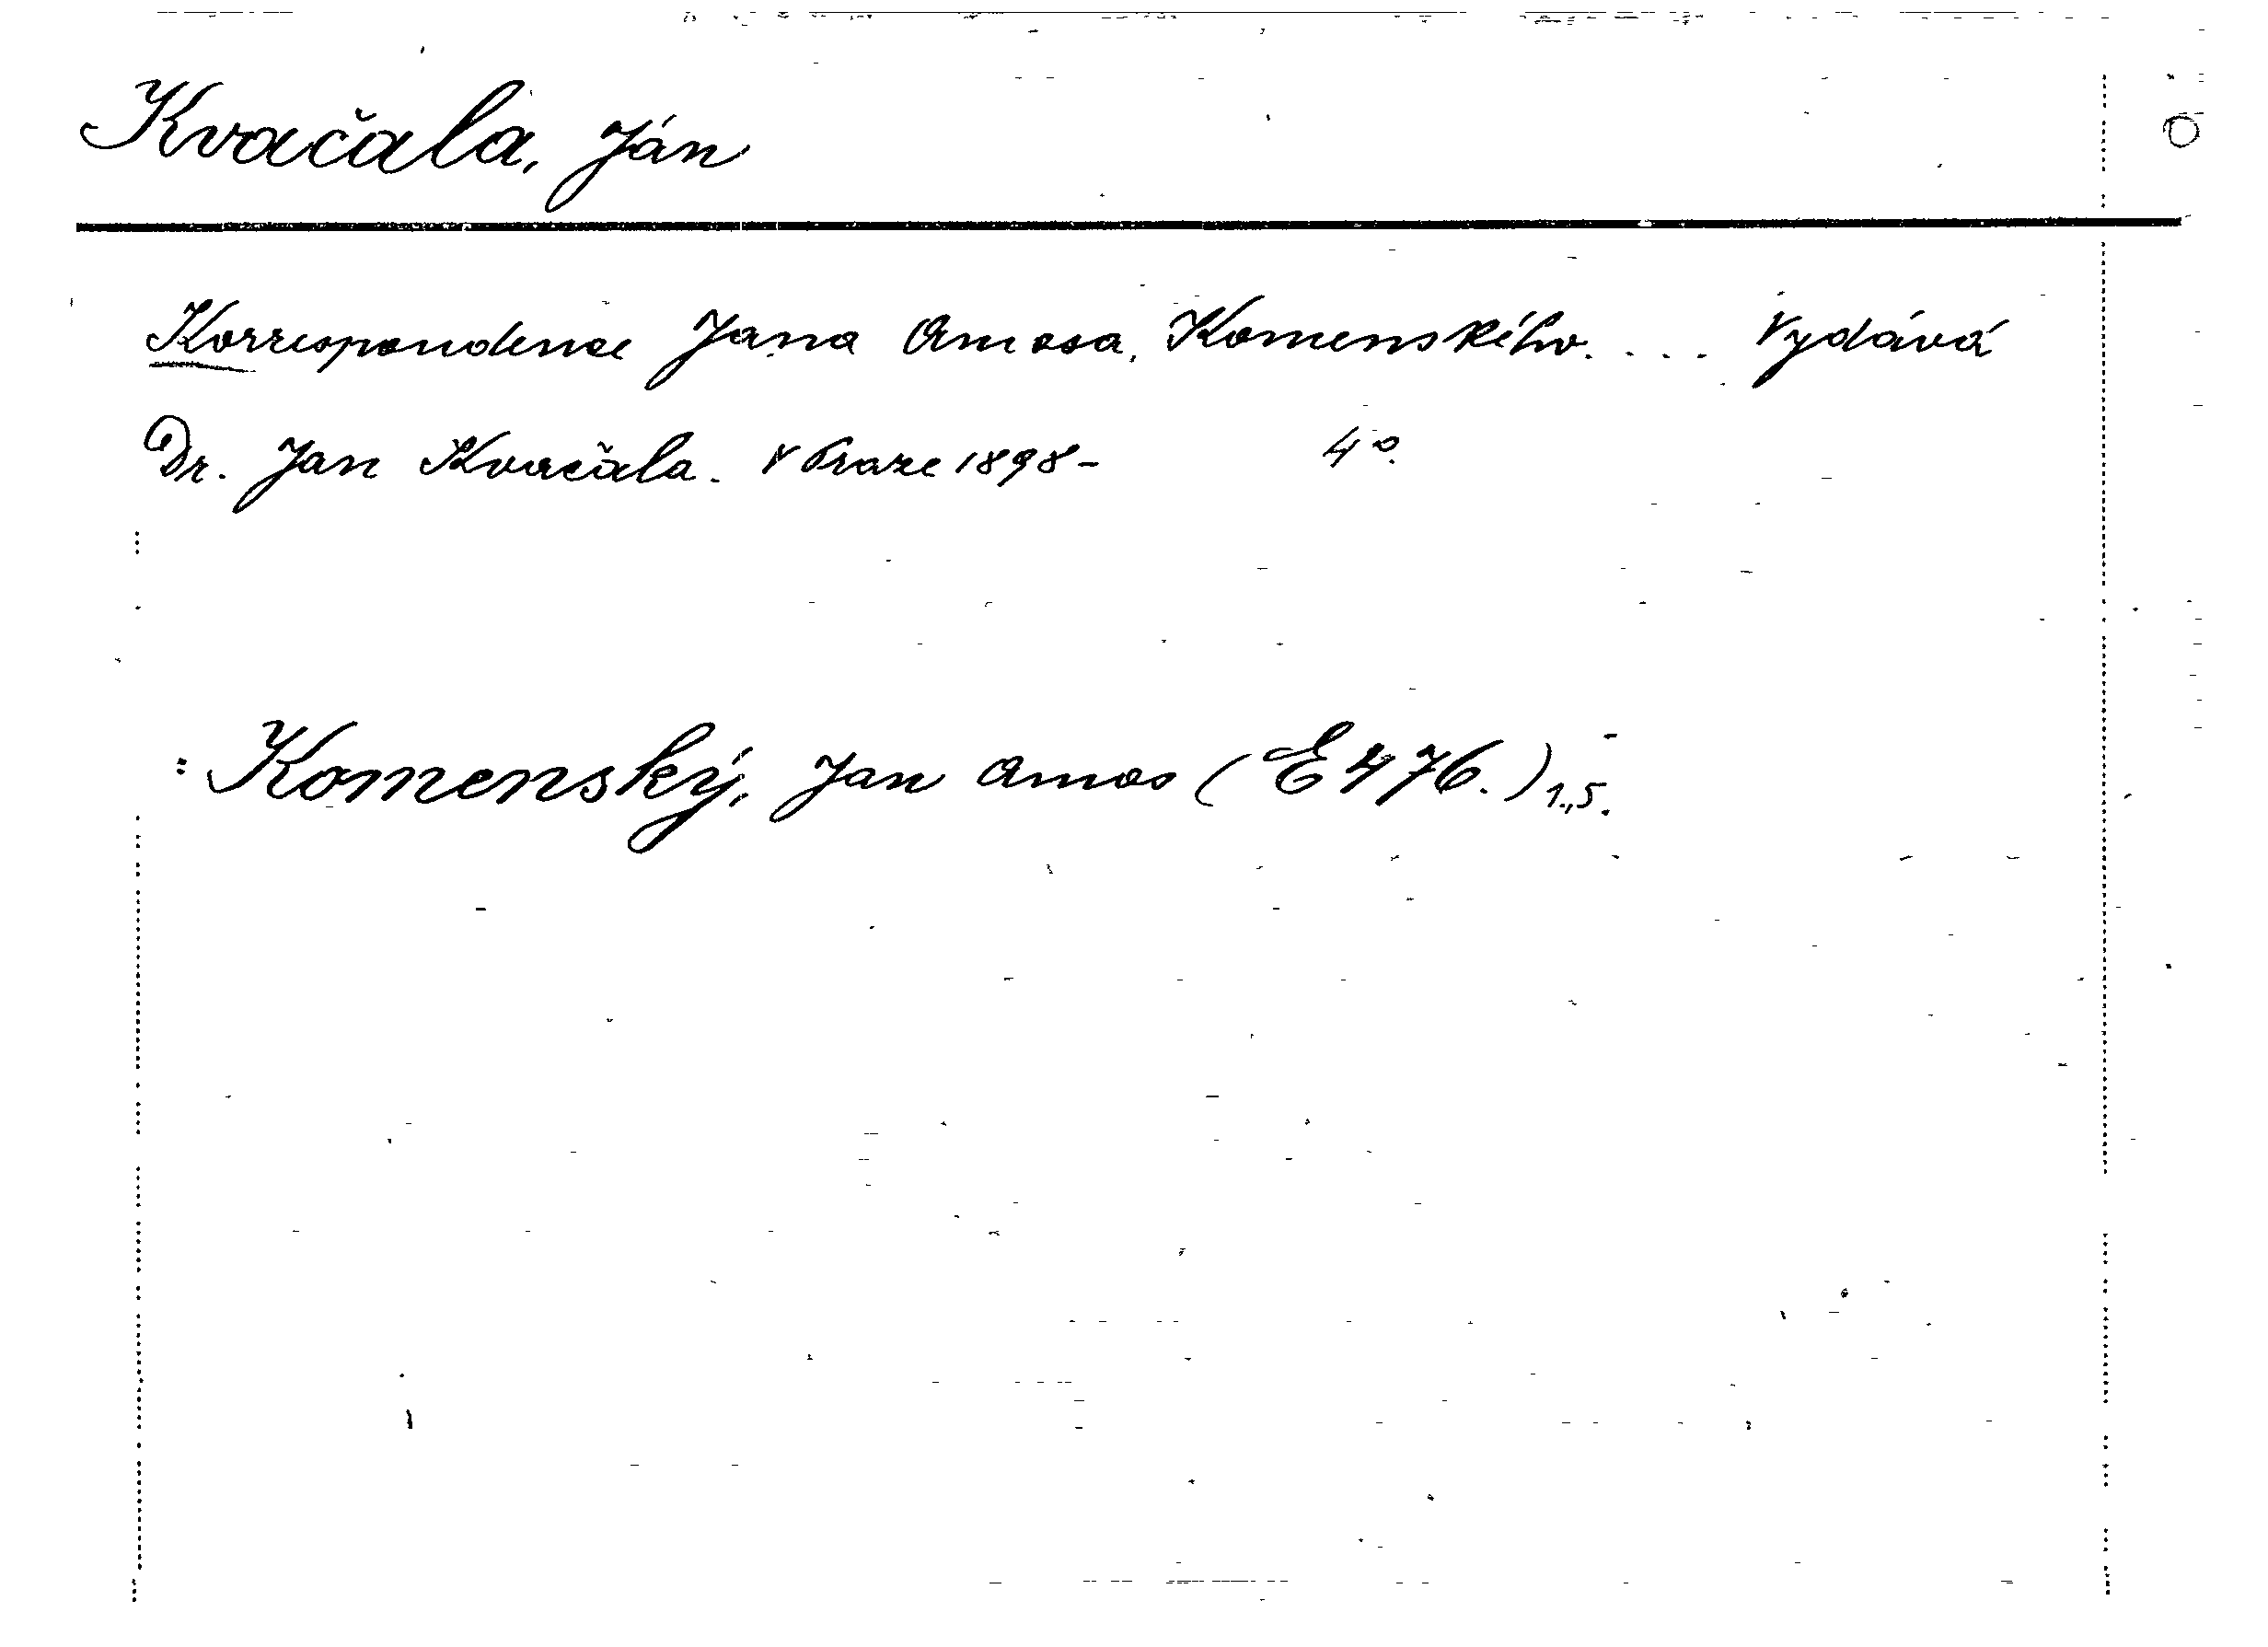 Kvačala, Ján
Korrespondence Jana Amosa, Komenského.... Vydává
Dr. Jan Kvačala. V Praze 1898- 4°.
: Komenský, Jan Amos (E 476.) 1.,5.